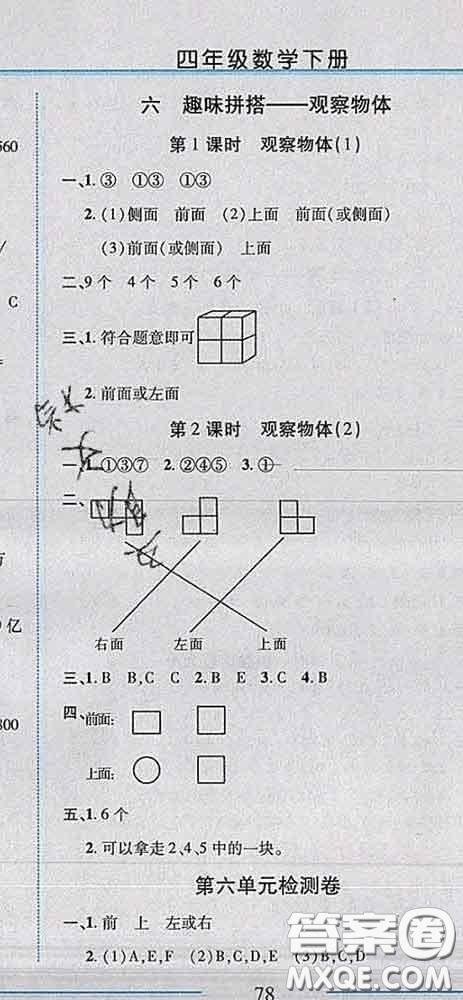 四年级数学下册
六 趣味拼搭——观察物体
560
第1课时 观察物体(1)
一、1.③ ①③ ①③
2.(1)侧面 前面 (2)上面 前面(或侧面)
(3)前面(或侧面) 上面
C
二、9个 4个 5个 6个
三、1.符合题意即可
2.前面或左面
第2课时 观察物体(2)
一、1.①③⑦ 2.②④⑤ 3.①
二、
右面 左面 上面
亿
三、1.B B C C 2.B E 3.C 4.B
四、前面:
800
上面:
五、1.6个
2.可以拿走2,4,5中的一块。
第六单元检测卷
一、1.前 上 左或右
2.(1)A,E,F (2)B,C,D (3)B,C,D
78
答案圈
MXQE.COM